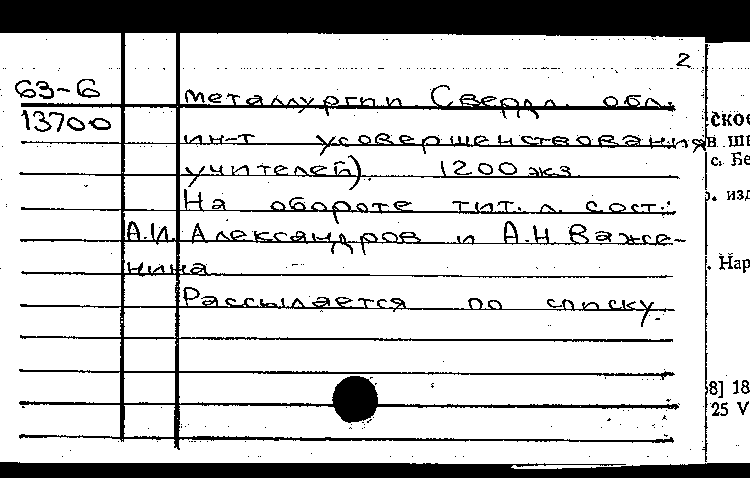 2
63-6
13700
металлургии. Свердл. обл.
ин-т усовершенствования
учителей). 1200 экз.
На обороте тит. л. сост.:
А.И. Александров и А.Н. Важе-
нина
Рассылается по списку.
с. Бе
. изд
. Нар
8] 18
25 V